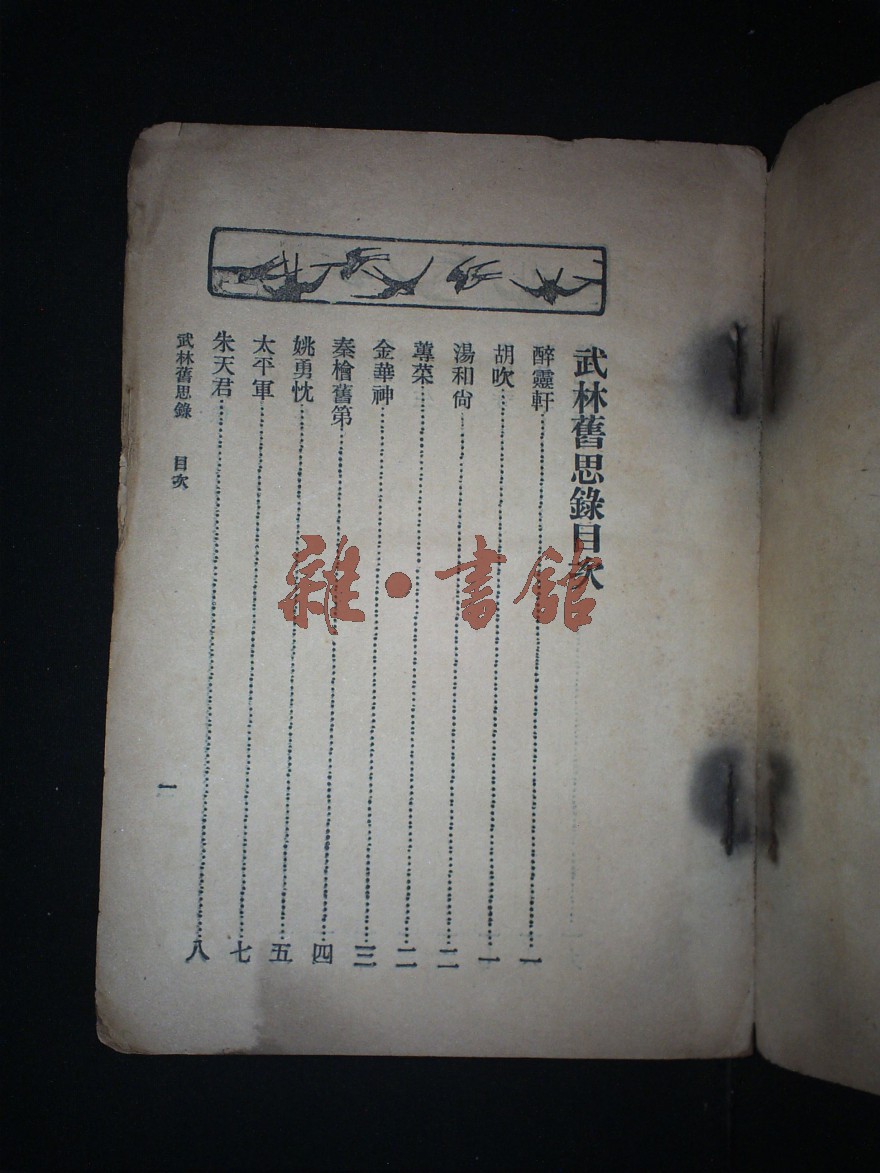 武林舊思錄目次
醉靈軒…一
胡吹…一
湯和尙…二
蓴菜…二
金華神…三
秦檜舊第…四
姚勇忱…五
太平軍…七
朱天君…八
武林舊思錄 目次
一
雜·書館